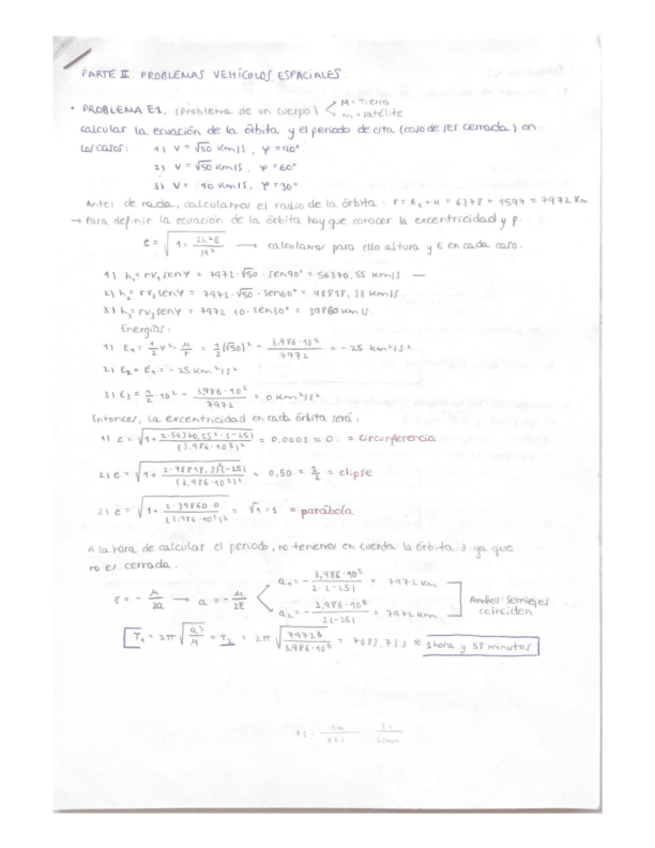 PARTE II. PROBLEMAS VEHÍCULOS ESPACIALES.
• PROBLEMA E1. (Problema de un cuerpo) < M = Tierra
m = satélite
calcular la ecuación de la órbita y el periodo de esta (caso de ser cerrada) en
los casos: 1) V = √50 km/s, φ = 90°
2) V = √50 km/s, φ = 60°
3) V = 10 km/s, φ = 30°
Antes de nada, calculamos el radio de la órbita. r = R_T + H = 6378 + 1594 = 7972 km
→ Para definir la ecuación de la órbita hay que conocer la excentricidad y p.
e = √(1 + 2h²E / μ²) → calculamos para ello altura y E en cada caso.
1) h₁ = rv₁senφ = 7972 · √50 · sen90° = 56370,55 km/s —
2) h₂ = rv₂senφ = 7972 · √50 · sen60° = 48818,33 km/s.
3) h₃ = rv₃senφ = 7972 · 10 · sen30° = 39860 km/s.
Energías:
1) E₁ = 1/2 v² - μ/r = 1/2 (√50)² - 3,986·10⁵ / 7972 = -25 km²/s²
2) E₂ = E₁ = -25 km²/s²
3) E₃ = 1/2 · 10² - 3,986·10⁵ / 7972 = 0 km²/s²
Entonces, la excentricidad en cada órbita será:
1) e = √(1 + 2·56370,55²·(-25) / (3,986·10⁵)²) = 0,0003 ≈ 0 = circunferencia
2) e = √(1 + 2·48818,33²(-25) / (3,986·10⁵)²) = 0,50 = 1/2 = elipse
3) e = √(1 + 2·39860·0 / (3,986·10⁵)²) = √1 = 1 = parábola
A la hora de calcular el periodo, no tenemos en cuenta la órbita 3 ya que
no es cerrada.
E = - μ/2a → a = - μ/2E < a₁ = - 3,986·10⁵ / 2·(-25) = 7972 km
a₂ = - 3,986·10⁵ / 2(-25) = 7972 km.
Ambos semiejes
coinciden
T₁ = 2π √(a³/μ) = T₂ = 2π √(7972³ / 3,986·10⁵) = 7083,73 s ≈ 1 hora y 58 minutos